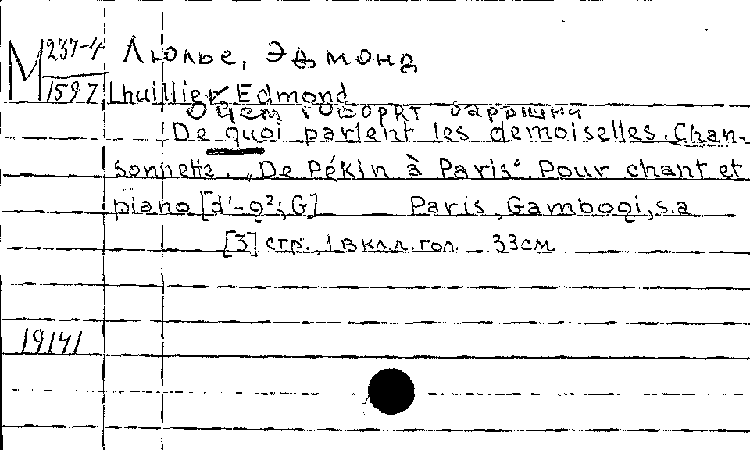 M 237-4 Люлье, Эдмонд
1597 Lhuillier Edmond
О чем говорят барышни
De quoi parlent les demoiselles. Chan-
sonnette. „De Pékin à Paris" Pour chant et
piano [d¹-g²; G] Paris, Gambogi, s.a
[3] стр., 1 вкл. гол. 33см
19141